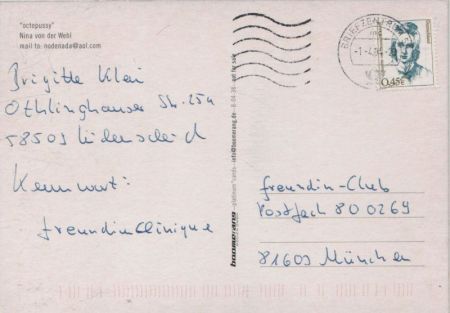 "octopussy"
Nina von der Wehl
mail to: nodenada@aol.com
Brigitte Klei
Othlinghauser Str. 25a
58509 Lüdenscheid
Kennwort:
freundinClinique
boomerang platinum°cards - info@boomerang.de - 8-04-38 - not for sale
BRIEFZENTRUM
-1.-4.04
0,45€
freundin-Club
Postfach 800269
81603 München